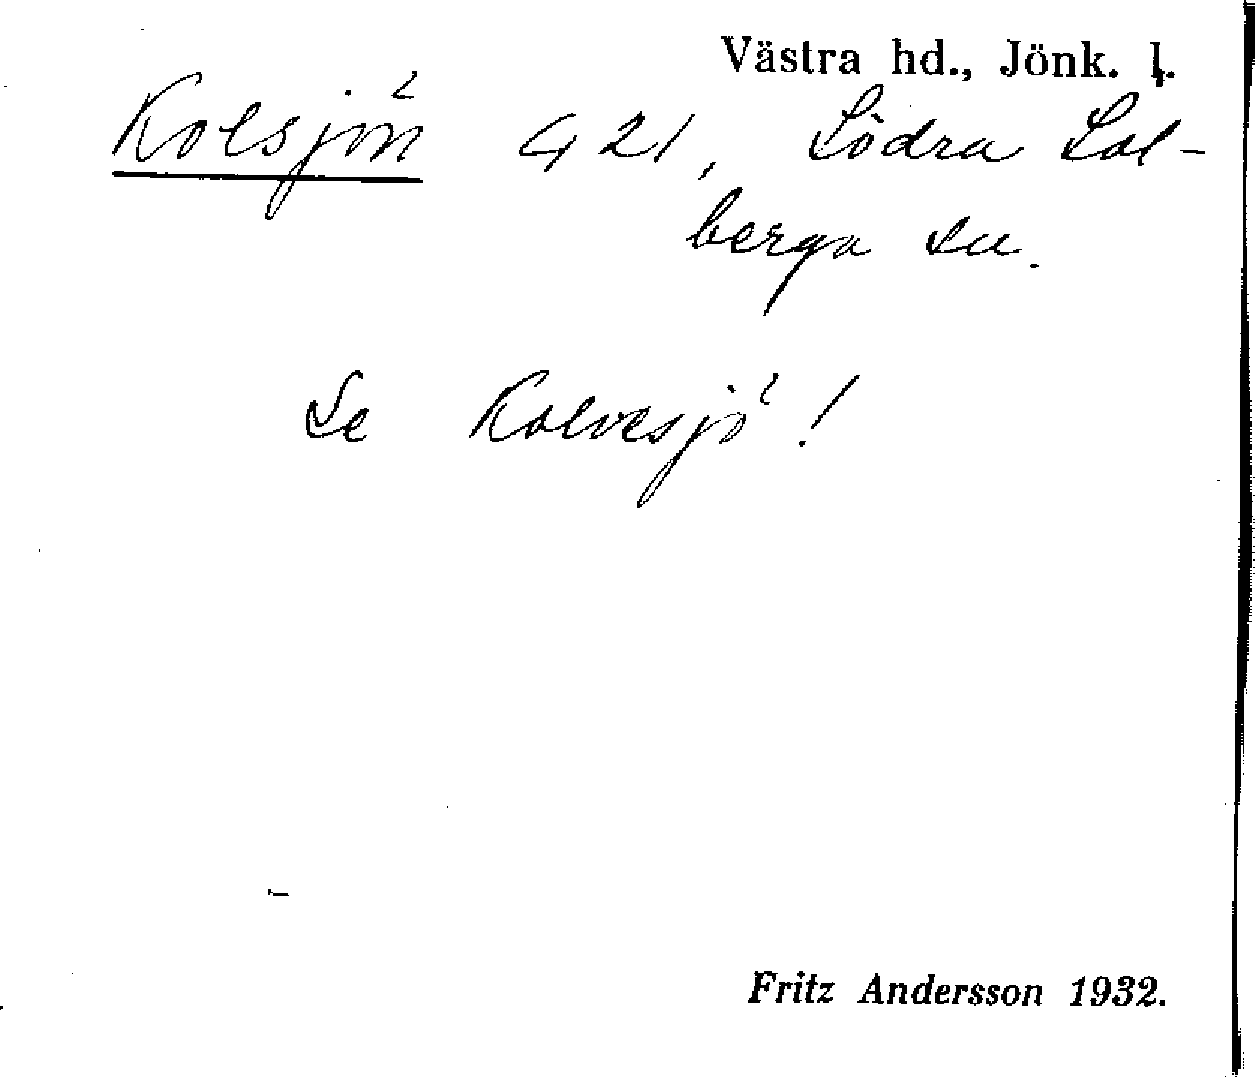 Västra hd., Jönk. l.
Kolsjön G 21, Södra Sol-
berga sn.
Se Kolvesjö!
Fritz Andersson 1932.